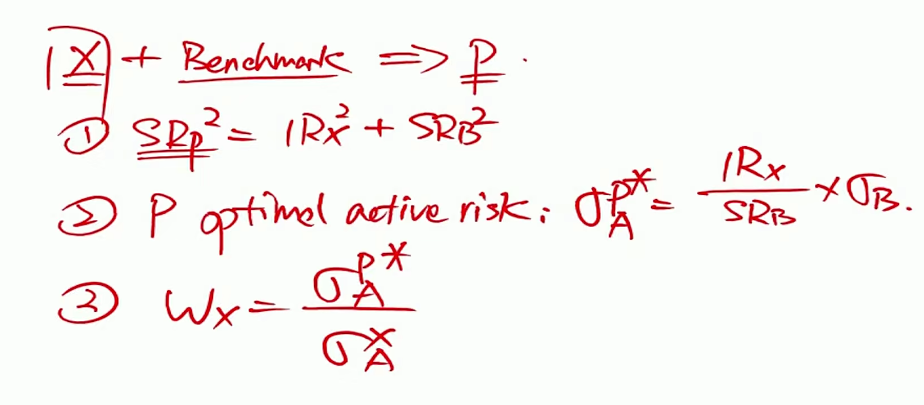 X + Benchmark => P.
① SRp² = IRx² + SRB²
② P optimal active risk: σ_A^P* = IRx / SRB × σB.
③ Wx = σ_A^P* / σ_A^X